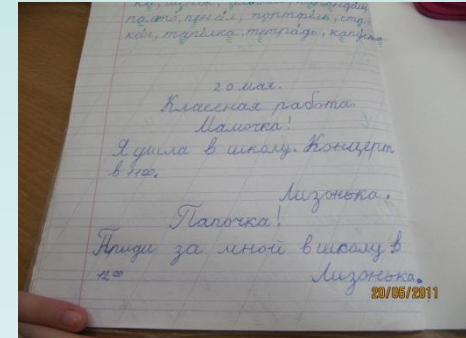 пальто, пенал, портфель, ста-
кан, тарелка, тетрадь, капуста
20 мая.
Классная работа.
Мамочка!
Я ушла в школу. Концерт
в 11⁰⁰.
Лизонька.
Папочка!
Приди за мной в школу в
12⁰⁰
Лизонька.
20/05/2011